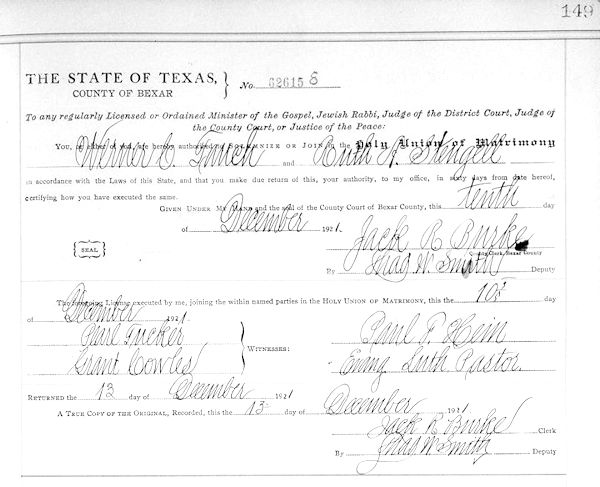 149
THE STATE OF TEXAS, } No. 62615 S
COUNTY OF BEXAR
To any regularly Licensed or Ordained Minister of the Gospel, Jewish Rabbi, Judge of the District Court, Judge of
the County Court, or Justice of the Peace:
YOU, or either of you, are hereby authorized to SOLEMNIZE OR JOIN in the Holy Union of Matrimony
Werner C. and Ruth A. Stengell
in accordance with the Laws of this State, and that you make due return of this, your authority, to my office, in sixty days from date hereof,
certifying how you have executed the same.
GIVEN UNDER MY HAND and the seal of the County Court of Bexar County, this tenth day
of December 1921.
SEAL
Jack R Burke
County Clerk, Bexar County
By Mag W. Smith Deputy
The foregoing License executed by me, joining the within named parties in the HOLY UNION OF MATRIMONY, this the 10th day
of December 1921
Pearl Tucker
Grant Cowles
} WITNESSES:
Paul F. Hein
Evang. Luth. Pastor.
RETURNED the 13 day of December 1921
A TRUE COPY OF THE ORIGINAL, Recorded, this the 13 day of December 1921
Jack R Burke Clerk
By Mag W Smith Deputy